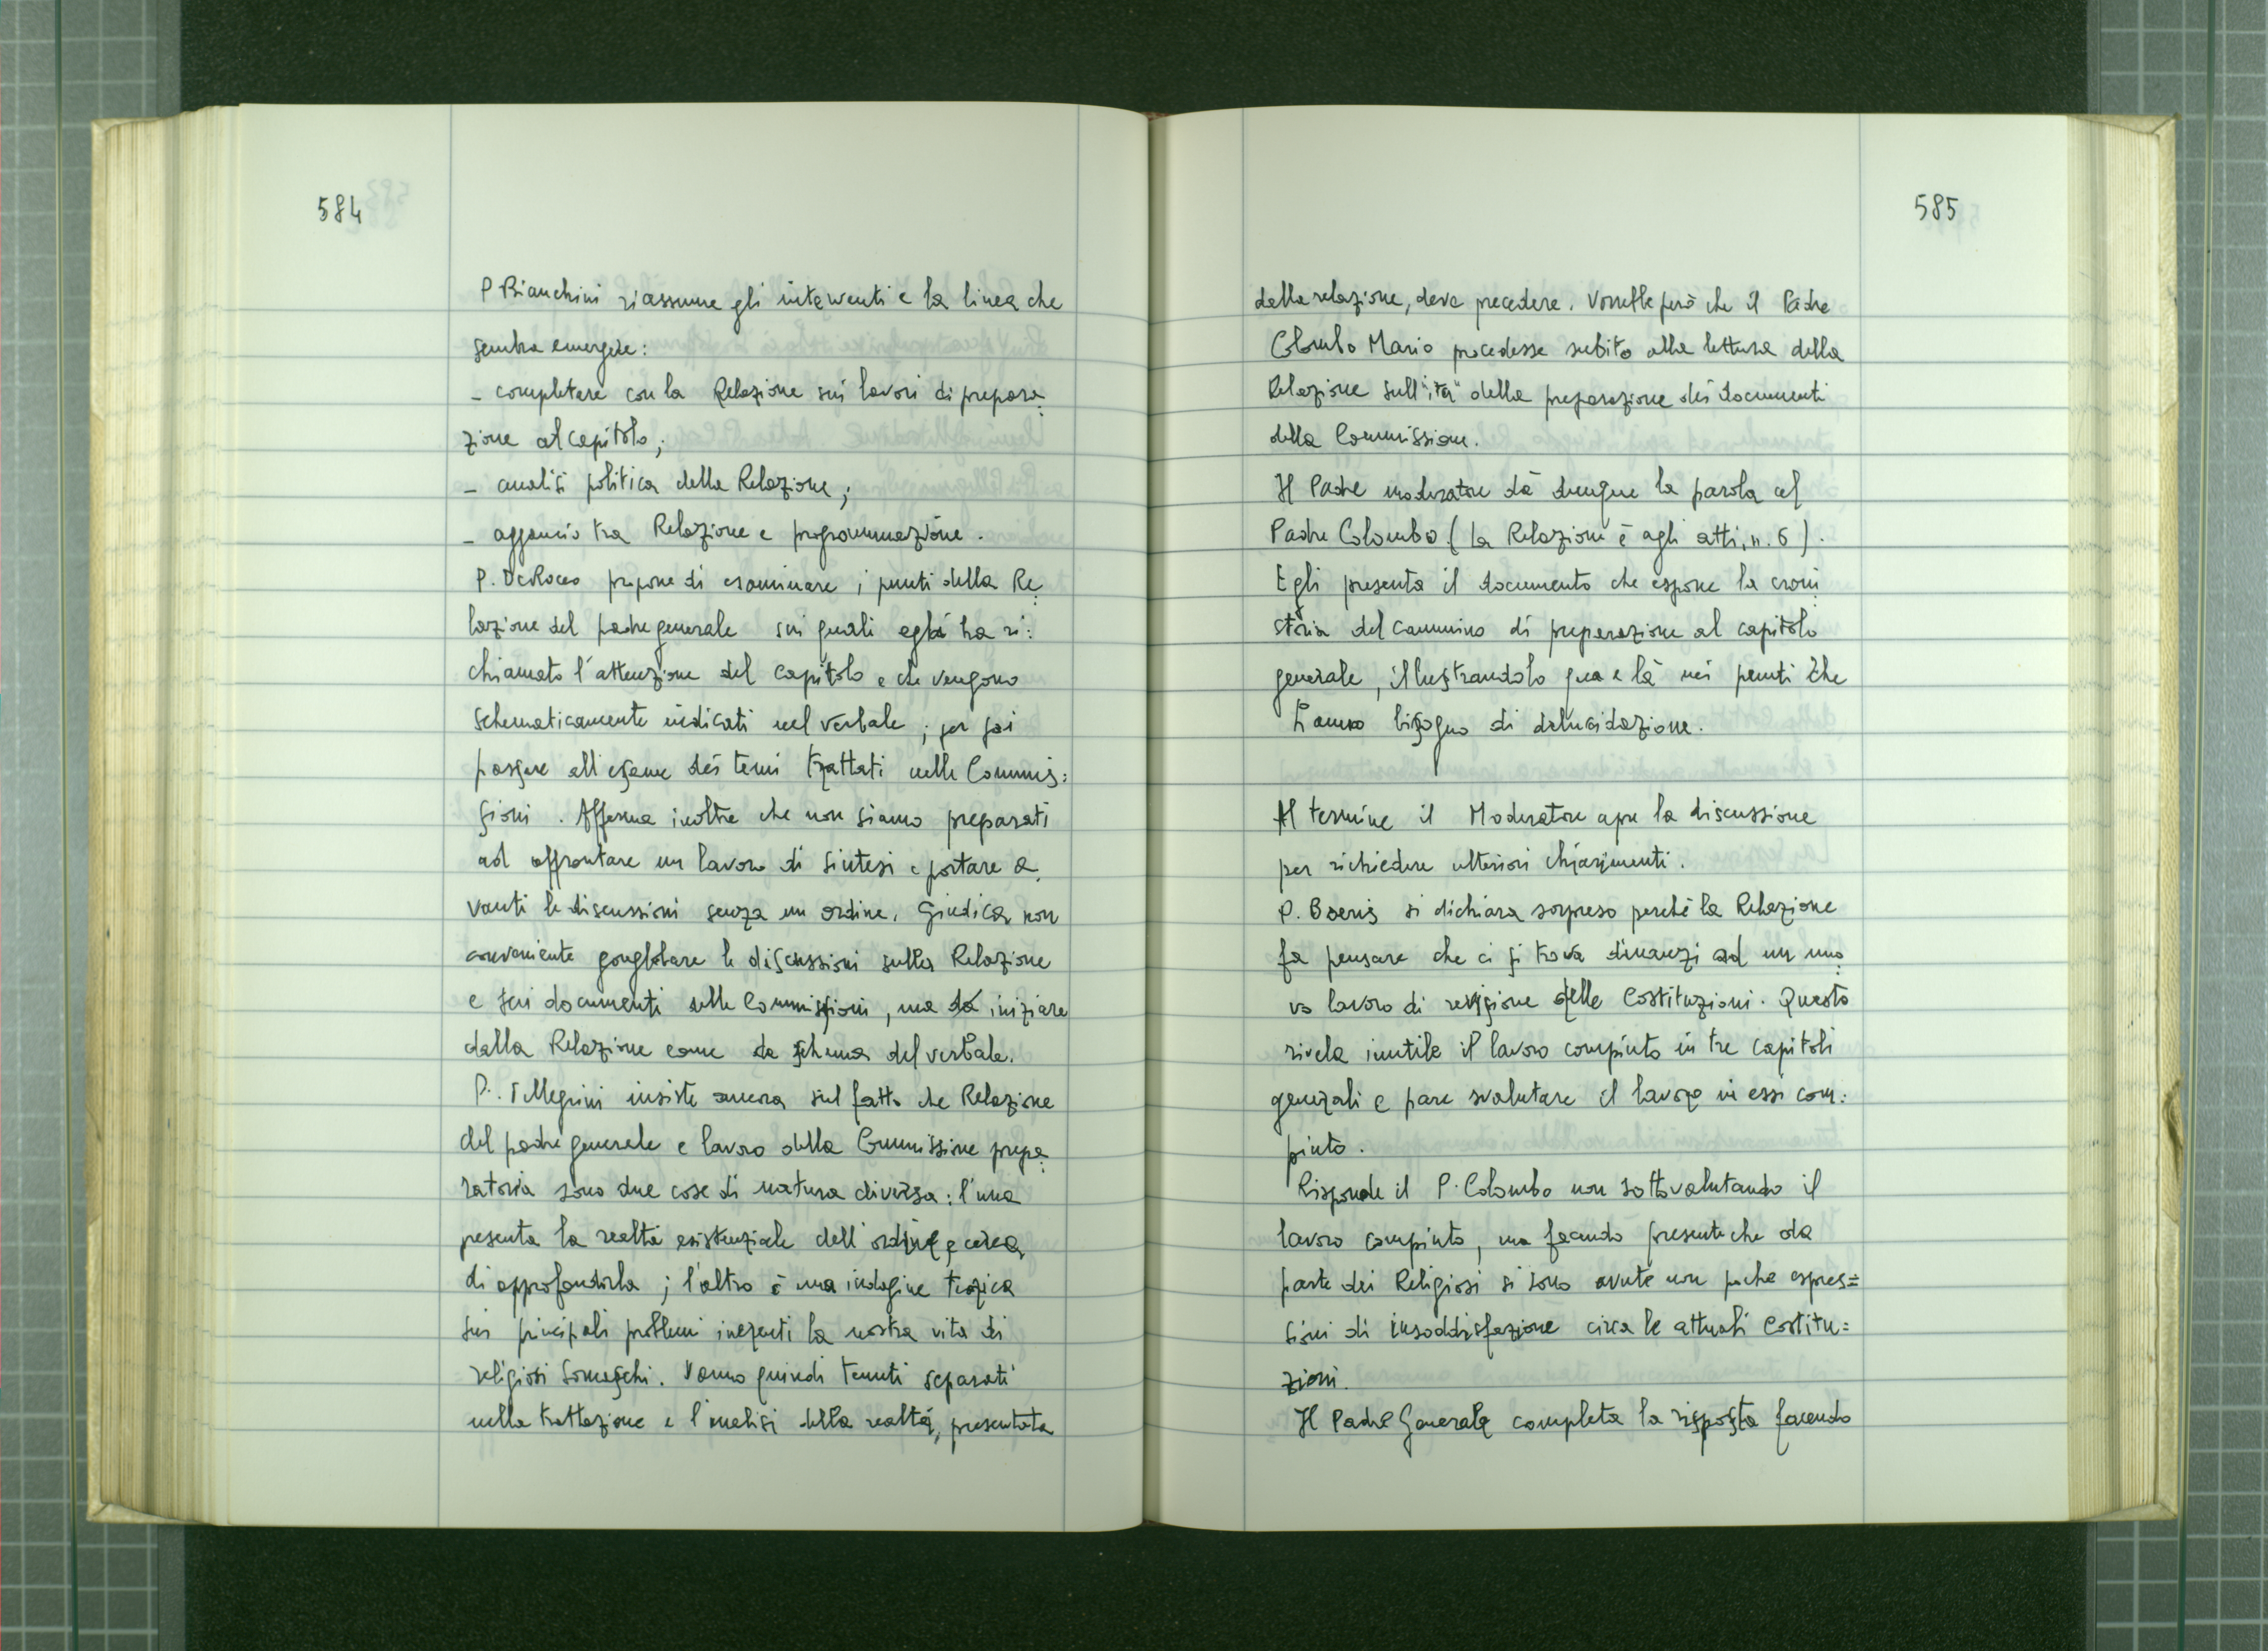 584
P Bianchini riassume gli interventi e la linea che
sembra emergere:
- completare con la Relazione sui lavori di prepara:
zione al capitolo;
- analisi politica della Relazione;
- aggancio tra Relazione e programmazione.
P. De Rocco propone di esaminare i punti della Re:
lazione del padre generale sui quali egli ha ri:
chiamato l'attenzione del capitolo e che vengono
schematicamente indicati nel verbale; per poi
passare all'esame dei temi trattati nelle Commis:
sioni. Afferma inoltre che non siamo preparati
ad affrontare un lavoro di sintesi e portare a.
vanti le discussioni senza un ordine. Giudica non
conveniente conglobare le discussioni sulla Relazione
e sui documenti delle Commissioni, ma da iniziare
dalla Relazione come da schema del verbale.
P. Pellegrini insiste ancora sul fatto che Relazione
del padre generale e lavoro della Commissione prepa:
ratoria sono due cose di natura diversa: l'una
presenta la realtà esistenziale dell'ordine e cerca
di approfondirla; l'altro è una indagine teorica
sui principali problemi inerenti la nostra vita di
religiosi Somaschi. Vanno quindi tenuti separati
nella trattazione e l'analisi della realtà, presentata
585
dalla relazione, deve precedere. Vorrebbe però che il Padre
Colombo Mario procedesse subito alla lettura della
Relazione sull'"iter" della preparazione dei documenti
della Commissione.
Il Padre moderatore dà dunque la parola al
Padre Colombo (La Relazione è agli atti, n. 6).
Egli presenta il documento che espone la croni:
storia del cammino di preparazione al capitolo
generale, illustrandolo qua e là nei punti che
hanno bisogno di delucidazione.
Al termine il Moderatore apre la discussione
per richiedere ulteriori chiarimenti.
P. Boeris si dichiara sorpreso perché la Relazione
fa pensare che ci si trova dinanzi ad un nuo:
vo lavoro di revisione delle Costituzioni. Questo
rivela inutile il lavoro compiuto in tre capitoli
generali e pare svalutare il lavoro in essi com:
piuto.
Risponde il P. Colombo non sottovalutando il
lavoro compiuto, ma facendo presente che da
parte dei Religiosi si sono avute non poche espres=
sioni di insoddisfazione circa le attuali Costitu=
zioni.
Il Padre Generale completa la risposta facendo